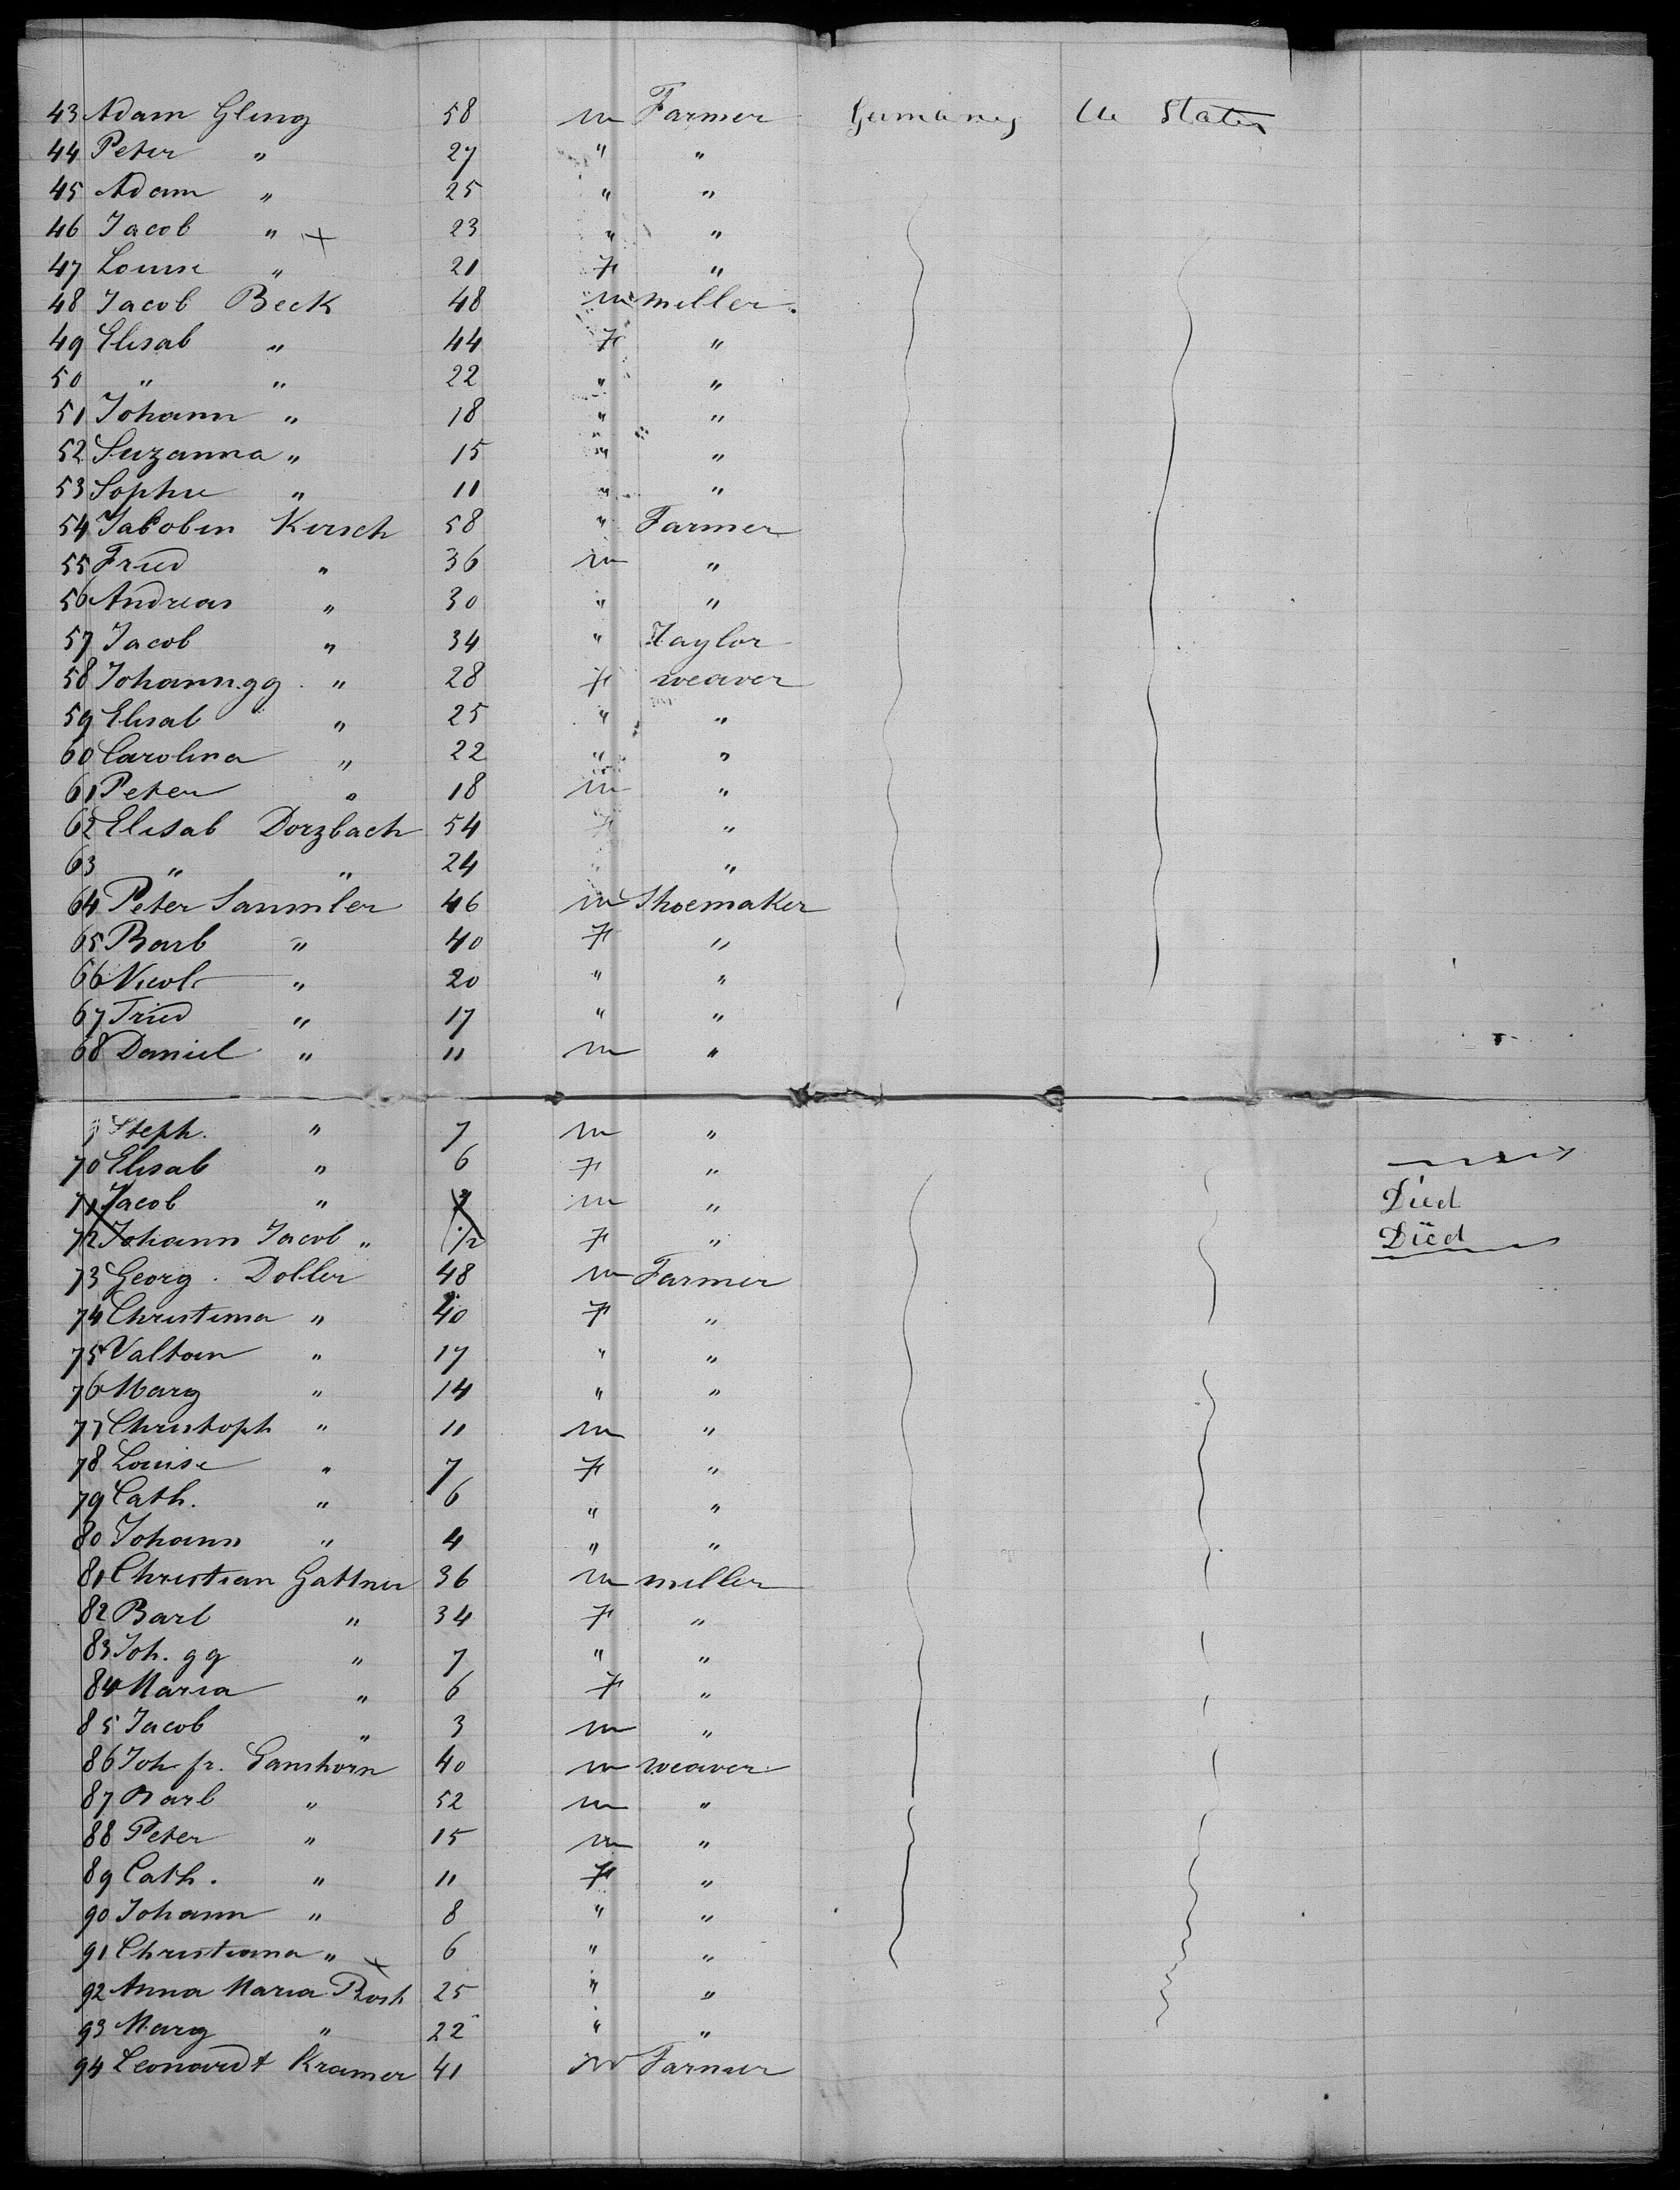 43 Adam Gling 58 m Farmer Germany Un States
44 Peter " 27 " "
45 Adam " 25 " "
46 Jacob " + 23 " "
47 Louise " 21 F "
48 Jacob Beck 48 m miller
49 Elisab " 44 F "
50 " " 22 " "
51 Johann " 18 " "
52 Suzanna " 15 " "
53 Sophie " 11 " "
54 Jakobin Kirsch 58 " Farmer
55 Fried " 36 m "
56 Andreas " 30 " "
57 Jacob " 34 " Taylor
58 Johann. gg. " 28 F weaver
59 Elisab " 25 " "
60 Carolina " 22 " "
61 Peter " 18 m "
62 Elisab Dorzbach 54 F "
63 " " 24 " "
64 Peter Sammler 46 m Shoemaker
65 Barb " 40 F "
66 Nicol " 20 " "
67 Fried " 17 " "
68 Daniel " 11 m "
Steph. " 7 m "
70 Elisab " 6 F "
71 Jacob " m " Died
72 Johann Jacob " 1/2 F " Died
73 Georg. Doller 48 m Farmer
74 Christina " 40 F "
75 Valtain " 17 " "
76 Marg " 14 " "
77 Christoph " 11 m "
78 Louise " 7 F "
79 Cath. " 6 " "
80 Johann " 4 " "
81 Christian Gattner 36 m miller
82 Barb " 34 F "
83 Joh. gg " 7 " "
84 Maria " 6 F "
85 Jacob " 3 m "
86 Joh. fr. Ganshorn 40 m weaver
87 Barb " 52 m "
88 Peter " 15 m "
89 Cath. " 11 F "
90 Johann " 8 " "
91 Christiana " + 6 " "
92 Anna Maria Rosh 25 " "
93 Marg " 22 " "
94 Leonardt Kramer 41 m Farmer